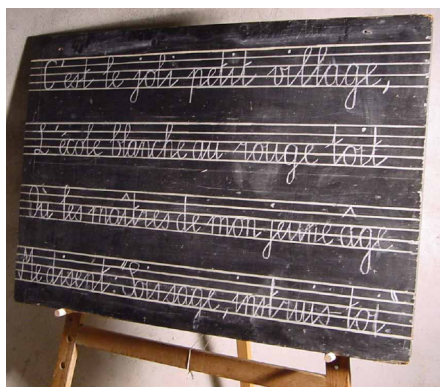 C'est le joli petit village,
L'école blanche au rouge toit
Où les maîtres de mon jeune âge
Me disent: "Sois sage, instruis-toi."